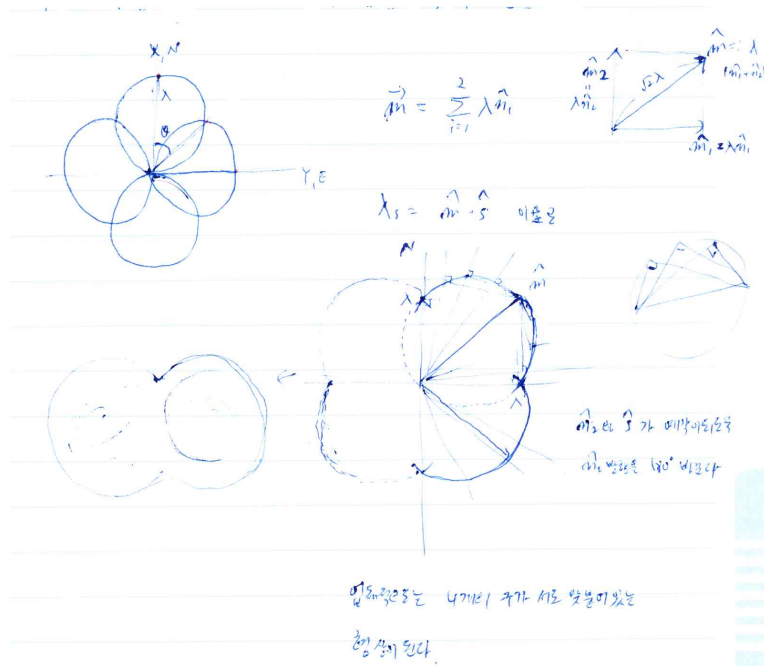 X, N
λ
θ
Y, E
m⃗ = Σ_{i=1}^{2} λn̂ᵢ
m̂₂
λn̂₂
√2λ
m̂ = λ
(n̂₁+n̂₂)
m̂₁ = λn̂₁
λs = m̂ · ŝ 이므로
N
m̂
λ
λ
m̂₂ 와 ŝ 가 예각이 되도록
m̂₂ 방향을 180° 바꾼다
입체적으로는 4개의 구가 서로 맞붙어있는
형상이 된다.